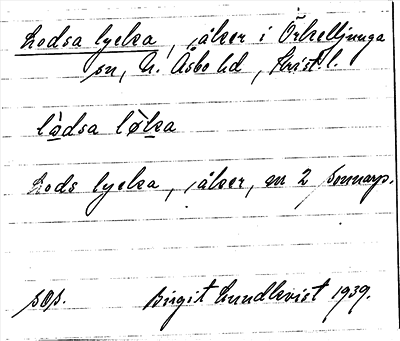 Lodsa lycka, åker i Örkelljunga
sn, N. Åsbo hd, Krist. l.
lodsa løka
Lods lycka, åker, m 2 Sonnarp.
sop. Birgit Lundkvist 1939.